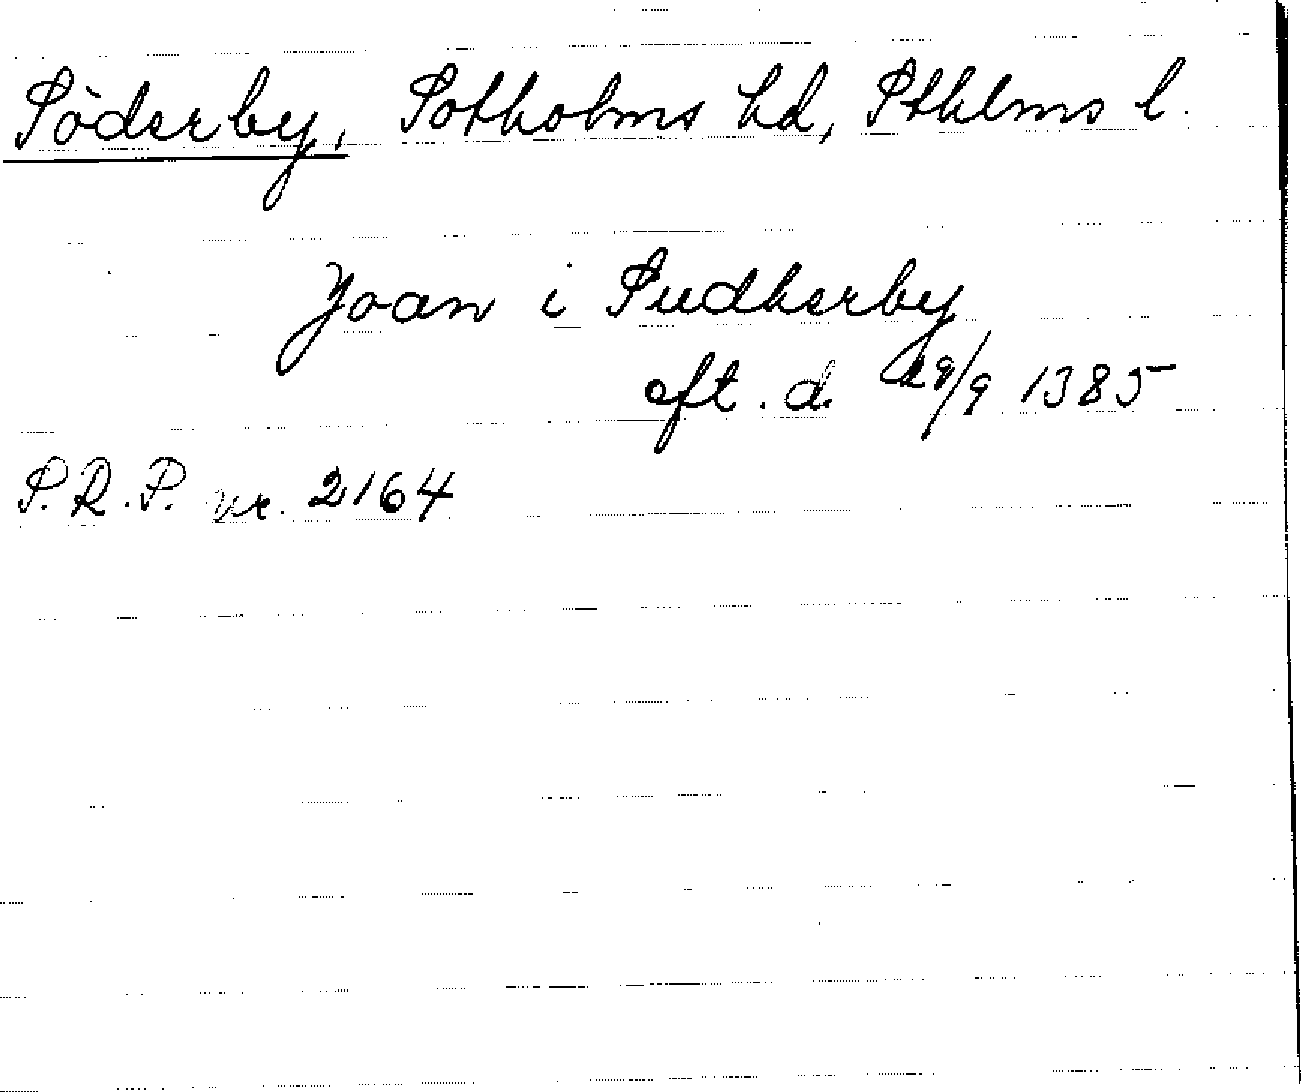 Söderby, Sotholms hd, Sthlms l.
Joan i Sudherby
eft. d. 29/9 1385
S.R.P. nr. 2164